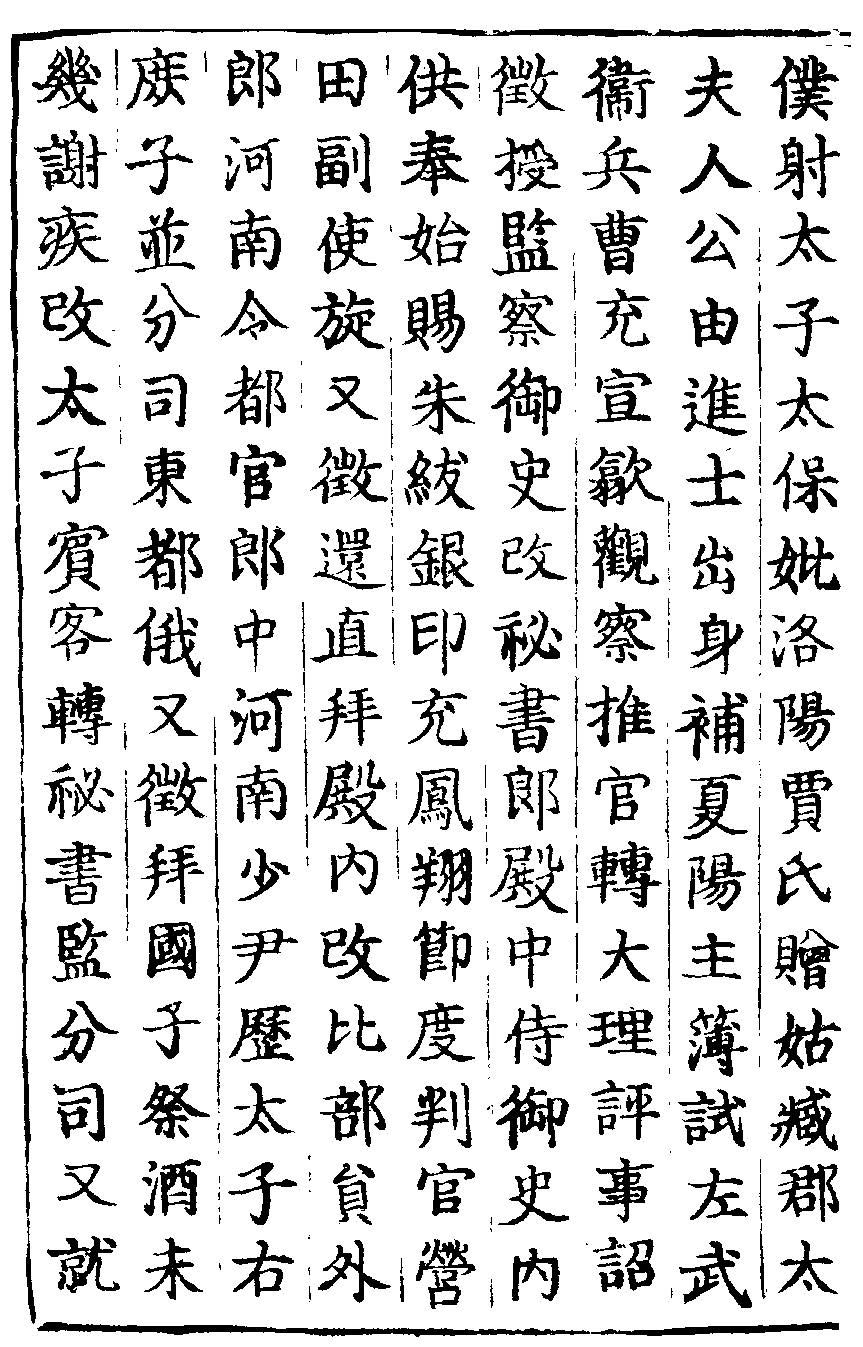 僕射太子太保妣洛陽賈氏贈姑臧郡太
夫人公由進士出身補夏陽主簿試左武
衞兵曹充宣歙觀察推官轉大理評事詔
徵授監察御史改祕書郎殿中侍御史內
供奉始賜朱紱銀印充鳳翔節度判官營
田副使旋又徵還直拜殿內改比部貟外
郎河南令都官郎中河南少尹歷太子右
庻子並分司東都俄又徵拜國子祭酒未
幾謝疾改太子賓客轉祕書監分司又就